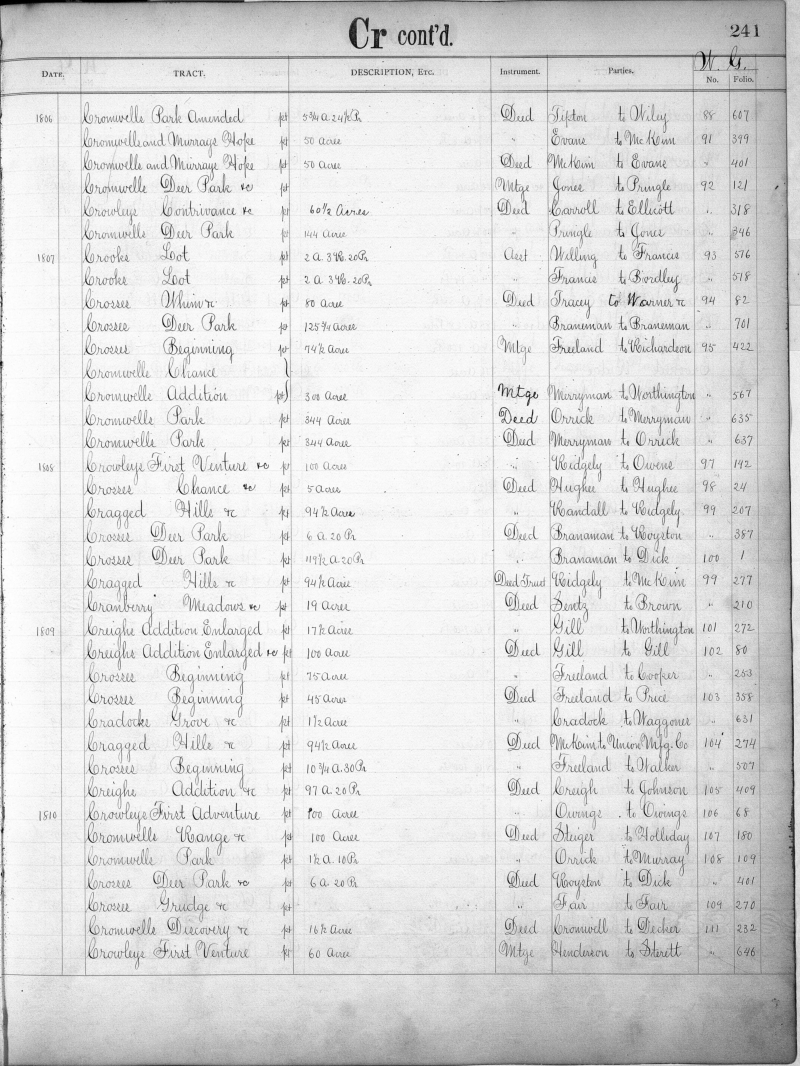 Cr cont'd.
241
W. G.
DATE. TRACT. DESCRIPTION, Etc. Instrument. Parties. No. Folio.
1806 Cromwells Park Amended pt 5 3/4 A. 24 1/2 Ps Deed Tipton to Wiley 88 607
Cromwells and Murrays Hope pt 50 Acres " Evans to McKim 91 399
Cromwells and Murrays Hope pt 50 Acres Deed McKim to Evans " 401
Cromwells Deer Park &c pt Mtge Jones to Pringle 92 121
Crowleys Contrivance &c pt 60 1/2 Acres Deed Carroll to Ellicott " 318
Cromwells Deer Park pt 144 Acres " Pringle to Jones " 346
1807 Crooks Lot pt 2 A. 3 R. 20 Ps Asst Welling to Francis 93 576
Crooks Lot pt 2 A. 3 R. 20 Ps " Francis to Bordley " 578
Crosses Whim &c pt 80 Acres Deed Tracey to Warner &c 94 82
Crosses Deer Park pt 125 3/4 Acres " Braneman to Braneman " 701
Crosses Beginning pt 74 1/2 Acres Mtge Freeland to Richardson 95 422
Cromwells Chance }
Cromwells Addition pt } 300 Acres Mtge Merryman to Worthington " 567
Cromwells Park pt 344 Acres Deed Orrick to Merryman " 635
Cromwells Park pt 344 Acres Deed Merryman to Orrick " 637
1808 Crowleys First Venture &c pt 100 Acres " Ridgely to Owens 97 142
Crosses Chance &c pt 5 Acres Deed Hughes to Hughes 98 24
Cragged Hills &c pt 94 1/2 Acres " Randall to Ridgely 99 207
Crosses Deer Park pt 6 A. 20 Ps Deed Branaman to Royston " 387
Crosses Deer Park pt 119 1/2 A. 20 Ps " Branaman to Dick 100 1
Cragged Hills &c pt 94 1/2 Acres Deed Trust Ridgely to McKim 99 277
Cranberry Meadows &c pt 19 Acres Deed Sentz to Brown " 210
1809 Creighs Addition Enlarged pt 17 1/2 Acres " Gill to Worthington 101 272
Creighs Addition Enlarged &c pt 100 Acres Deed Gill to Gill 102 80
Crosses Beginning pt 75 Acres " Freeland to Cooper " 253
Crosses Beginning pt 45 Acres Deed Freeland to Price 103 358
Cradocks Grove &c pt 1 1/2 Acres " Cradock to Waggoner " 631
Cragged Hills &c pt 94 1/2 Acres Deed McKim to Union Mfg. Co 104 274
Crosses Beginning pt 10 3/4 A. 30 Ps " Freeland to Walker " 507
Creighs Addition &c pt 97 A. 20 Ps Deed Creigh to Johnson 105 409
1810 Crowleys First Adventure pt 100 Acres " Owings to Owings 106 68
Cromwells Range &c pt 100 Acres Deed Steiger to Holliday 107 180
Cromwells Park pt 1 1/2 A. 10 Ps " Orrick to Murray 108 109
Crosses Deer Park &c pt 6 A. 20 Ps Deed Royston to Dick " 401
Crosses Grudge &c pt " Fair to Fair 109 270
Cromwells Discovery &c pt 16 1/2 Acres Deed Cromwell to Decker 111 232
Crowleys First Venture pt 60 Acres Mtge Henderson to Sterett " 646